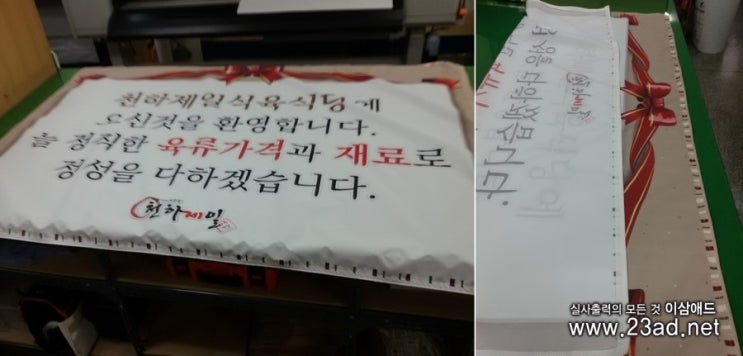 천하제일식육식당에
오신것을 환영합니다.
늘 정직한 육류가격과 재료로
정성을 다하겠습니다.
천하제일
실사출력의 모든 것 이삼애드
www.23ad.net